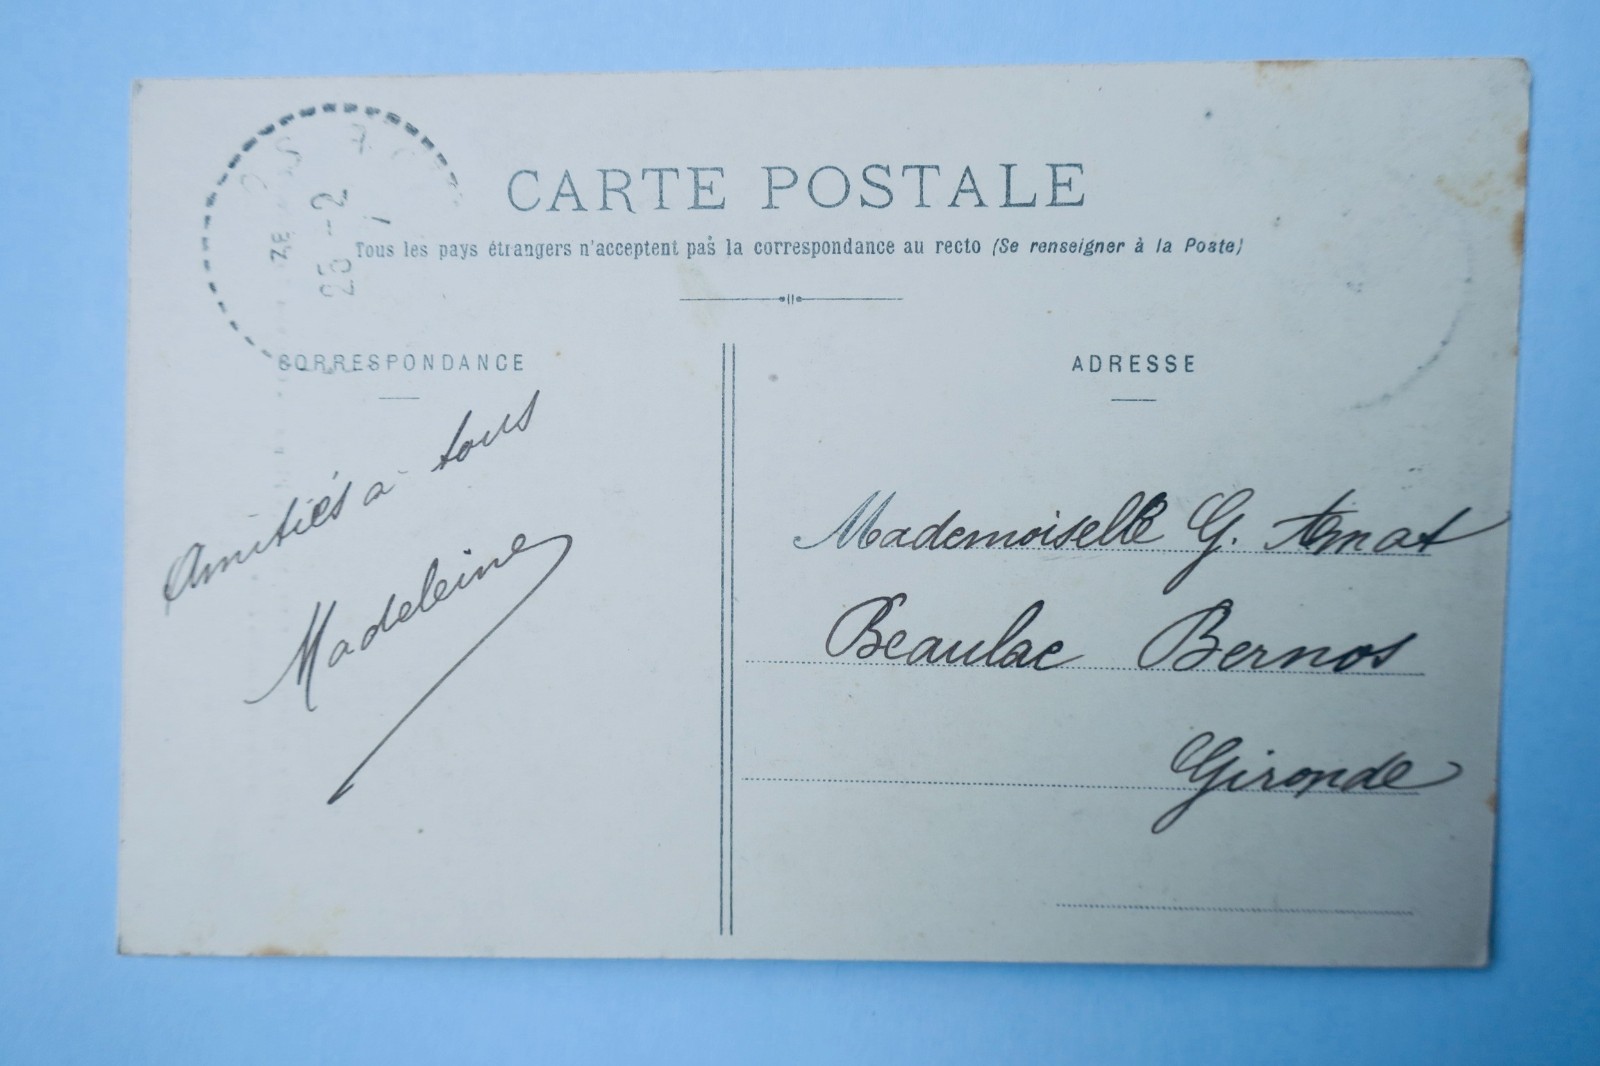 CARTE POSTALE
Tous les pays étrangers n'acceptent pas la correspondance au recto (Se renseigner à la Poste)
CORRESPONDANCE
Amitiés à tous
Madeleine
ADRESSE
Mademoiselle G. Amat
Beaulac Bernos
Gironde
3E
25 -2